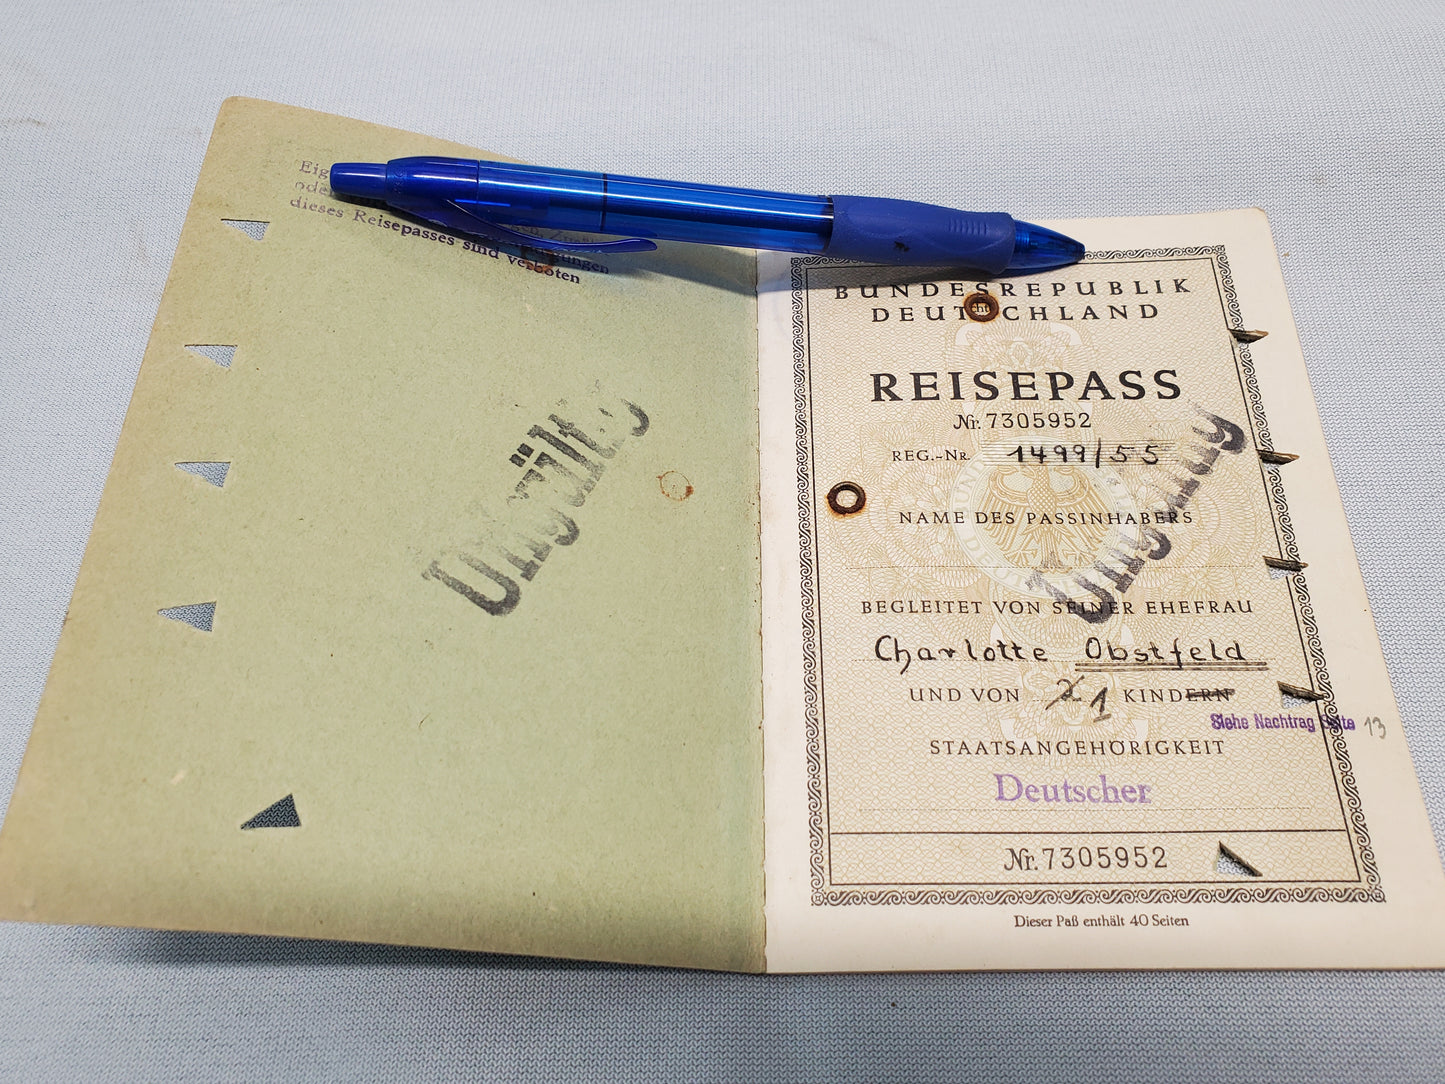 dieses Reisepasses sind verboten
Ungültig
BUNDESREPUBLIK
DEUTSCHLAND
REISEPASS
Nr. 7305952
REG.-NR. 1499/55
NAME DES PASSINHABERS
Ungültig
BEGLEITET VON SEINER EHEFRAU
Charlotte Obstfeld
UND VON 2 1 KINDERN
Siehe Nachtrag Seite 13
STAATSANGEHÖRIGKEIT
Deutscher
Nr. 7305952
Dieser Paß enthält 40 Seiten